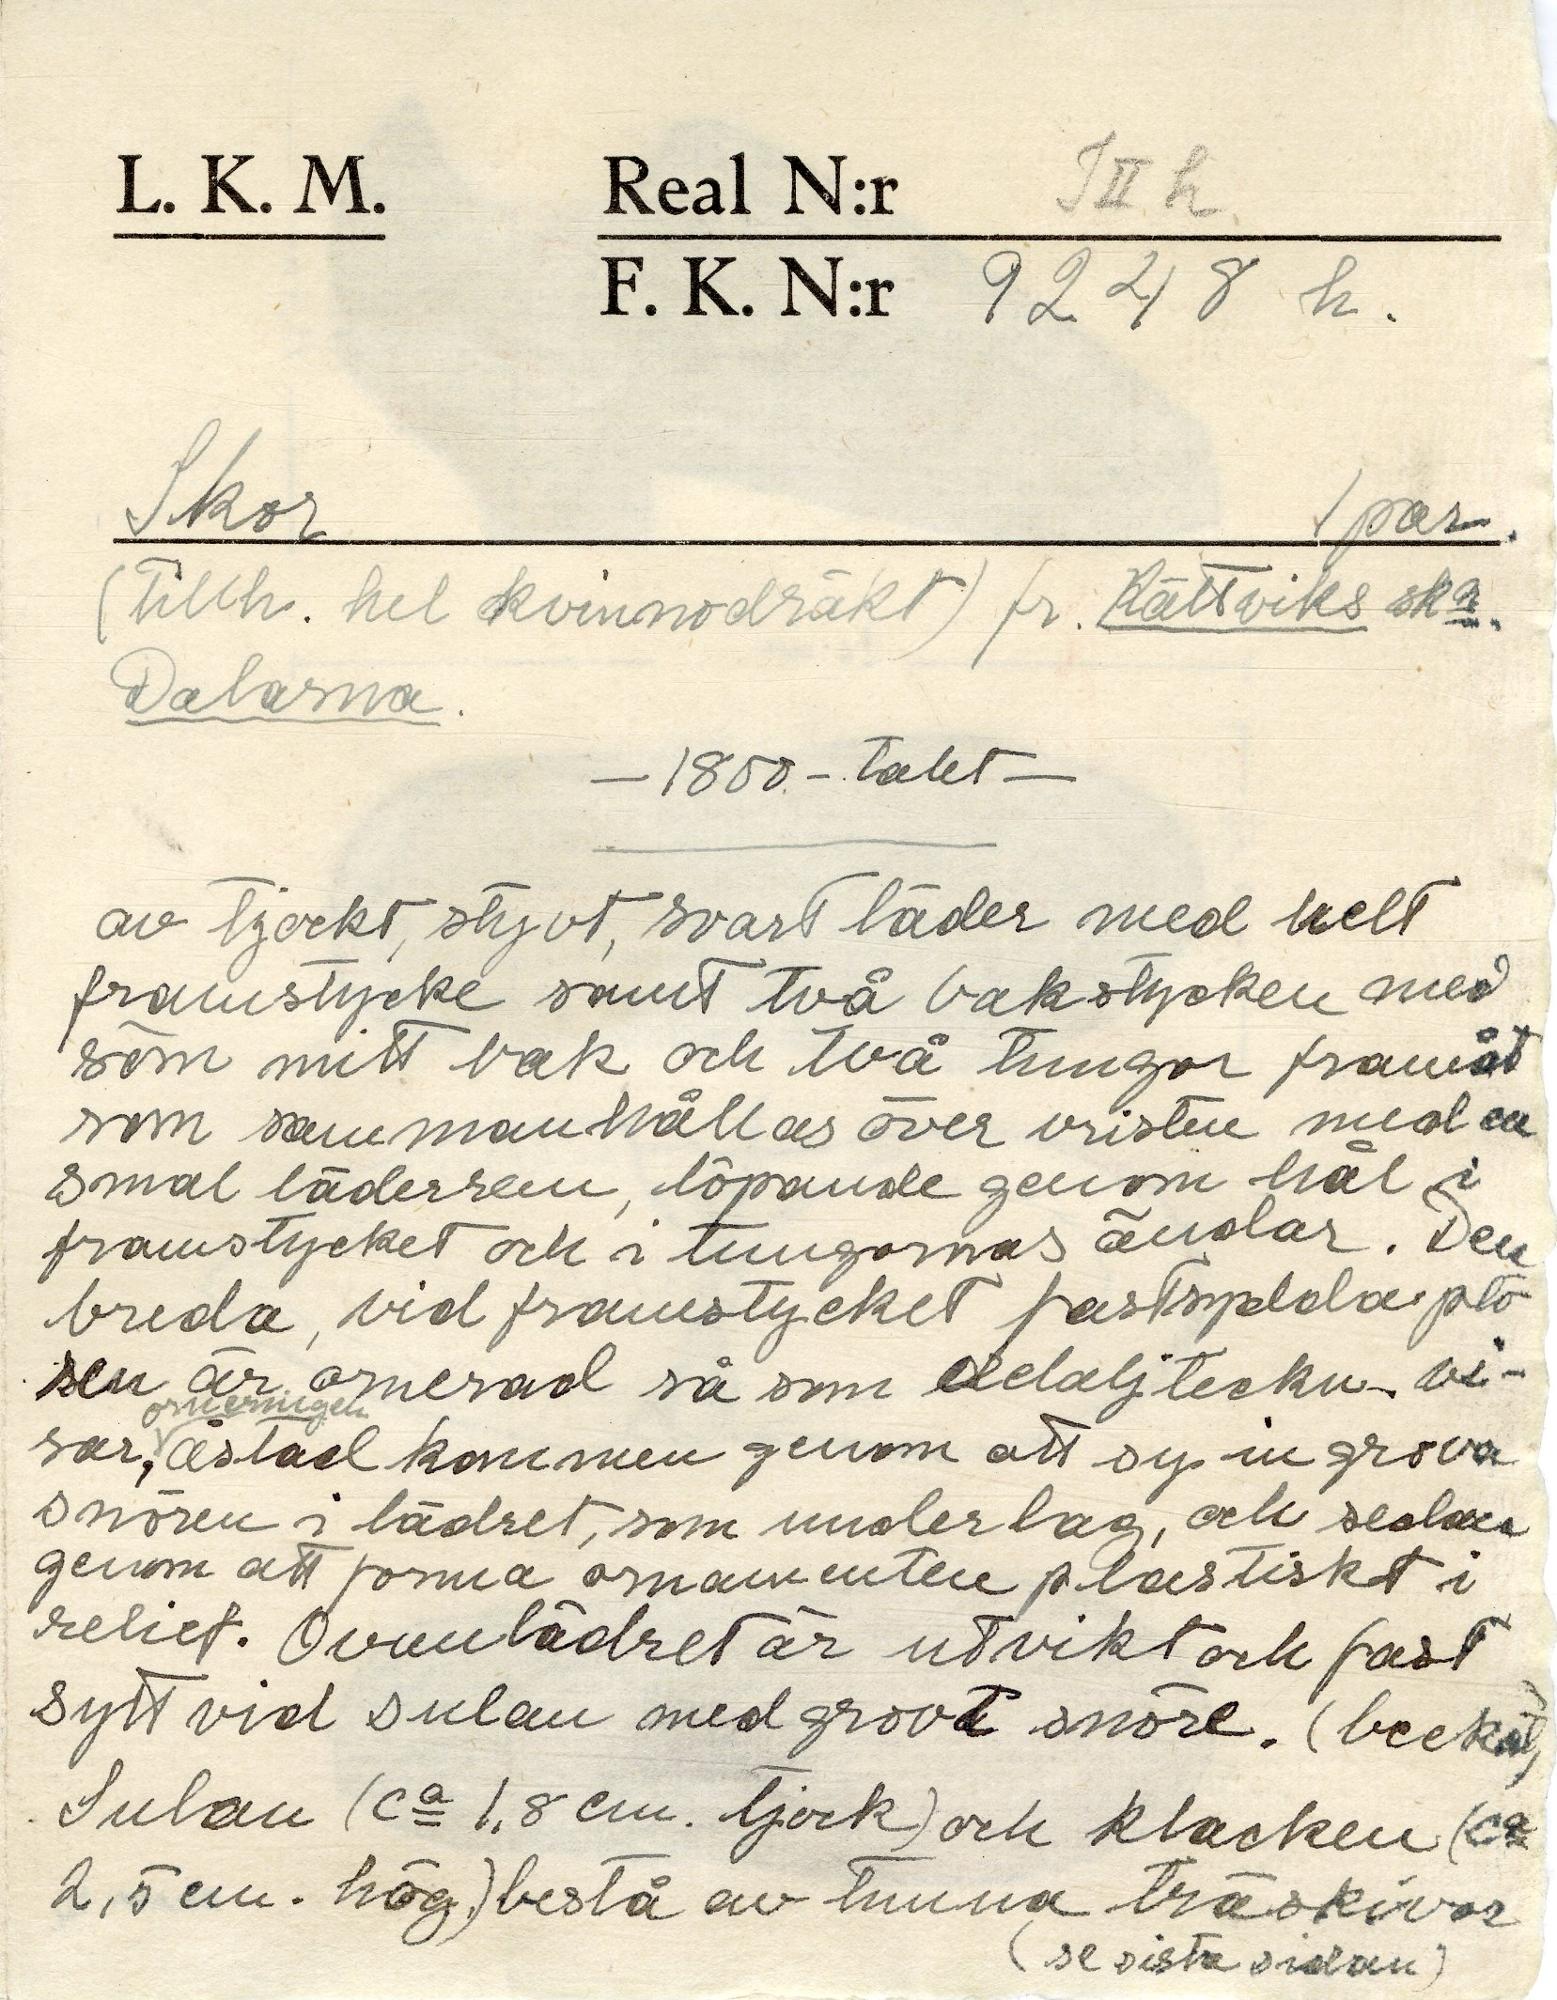 L. K. M. Real N:r T II h
F. K. N:r 9248 h.
Skor 1 par.
(Tillh. hel kvinnodräkt) fr. Rättviks skn.
Dalarna.
— 1800 - talet —
av tjockt, styvt, svart läder med helt
framstycke samt två bakstycken med
söm mitt bak och två tungor framåt
som sammanhållas över vristen med en
smal läderrem, löpande genom hål i
framstycket och i tungornas ändar. Den
breda, vid framstycket fastsydda plö
sen är ornerad så som detaljteckn. vi-
sar, orneringen åstad kommen genom att sy in grova
snören i lädret, som underlag, och sedan
genom att forma ornamenten plastiskt i
relief. Ovanlädret är utvikt och fast
sytt vid sulan med grovt snöre. (beckat)
Sulan (ca 1,8 cm. tjock) och klacken (ca
2,5 cm. hög) bestå av tunna träskivor
(se sista sidan)